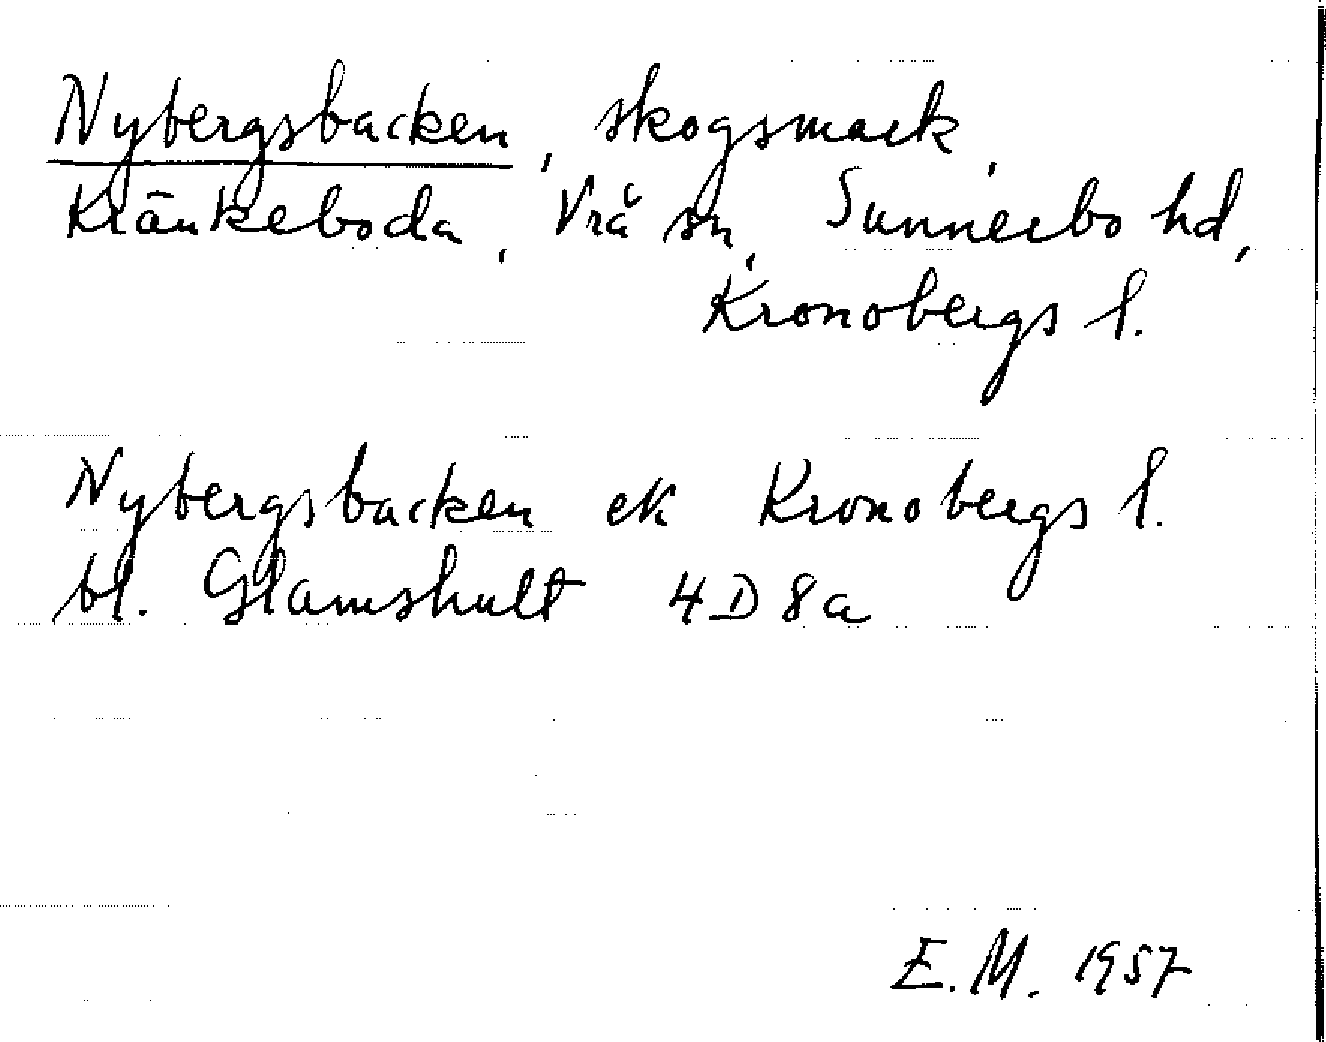 Nybergsbacken, skogsmark,
Kränkeboda, Vrå sn, Sunnerbo hd,
Kronobergs l.
Nybergsbacken ek Kronobergs l.
bl. Glamshult 4D8a
E.M. 1957